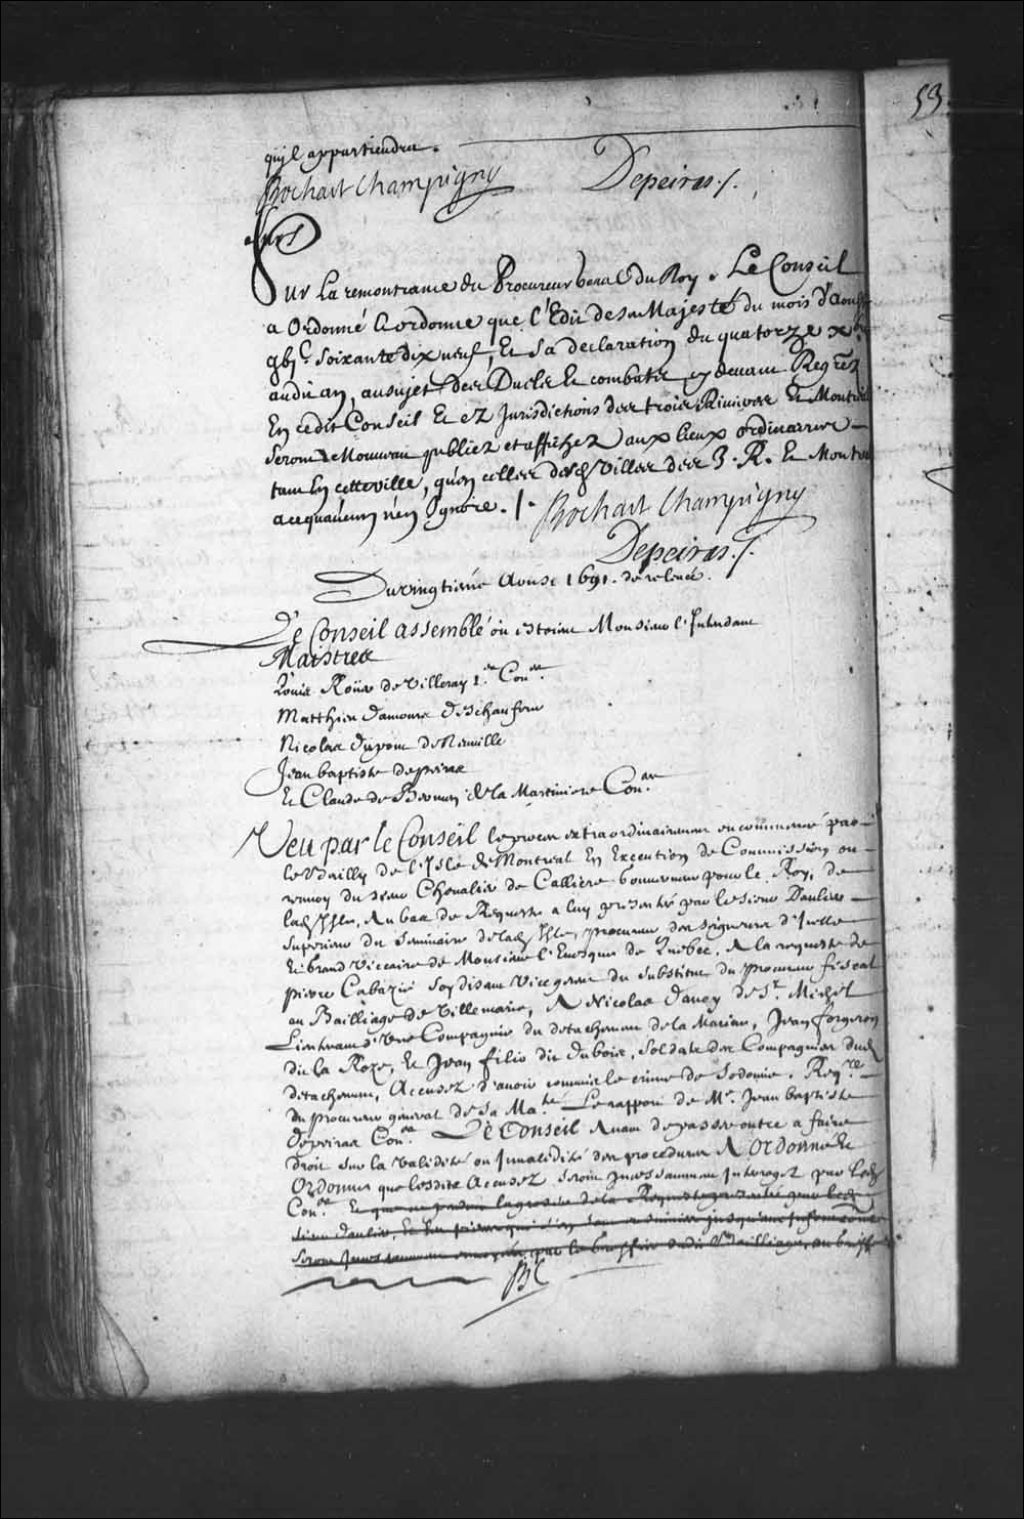 53
qu'il appartiendra.
Bochart Champigny Depeiras ./.
Sur La remontrance du Procureur general du Roy. Le Conseil
a Ordonné & ordonne que l'Edit de sa Majesté du mois d'aoust
gbjc soixante dix neuf, Et sa declaration du quatorze xbre
audit an, au sujet des Duels Et combats cy devant Regrez
En cedit Conseil Et ez Jurisdictions des trois Rivieres Et Montreal
seront de Nouveau publiez et affichez aux lieux ordinaires
tant En cette ville, qu'en celles desd villes des 3. R. Et Montreal
acequaucun n'en Ignore. /. Bochart Champigny
Depeiras ./.
Du vingtieme Aoust 1691. de relevée.
Le Conseil assemblé où estoient Monsieur l'Intendant
Maistres
Louis Roüer de Villeray 1er Coner
Matthieu damours deschaufour
Nicolas dupont de Neuville
Jean baptiste depeiras
Et Claude de Bermen de la Martiniere Coners
Veu par le Conseil le procez extraordinairement encommencé par
le Bailly de l'Isle de Montreal En Execution de Commission ou
renvoy du sieur Chevalier de Calliere Gouverneur pour le Roy, de
lad Isle, Au bas de Requeste a luy presentée par le sieur Daulier
superieur du seminaire de lad Isle, procureur des seigneurs d'Icelle
Et Grand Viccaire de Monsieur l'Evesque de Quebec, A la requeste de
pierre Cabazié soy disant Vice gerent du substitut du procureur fiscal
au Bailliage de Villemarie, A Nicolas daucy de St. Michel
Lieutenant d'Une Compagnie du detachement de la Marine, Jean forgeron
dit la Roze, Et Jean filio dit dubois, soldats des Compagnies dud
detachement, Accusez d'avoir commis le crime de sodomie. Reqre
du procureur general de sa Maté Le rapport de Me. Jean baptiste
depeiras Coner Le Conseil Avant de passer outre a faire
droit sur la validité ou Invalidité des procedures A Ordonné Et
Ordonne que lesdits Accusez seront Incessamment Interogez par led
Coner Et que la grosse de la Requeste presentée par led
sieur Daulier, Et les
seront Incessamment envoyées par le Greffier dudit Bailliage, au Greffe
BC